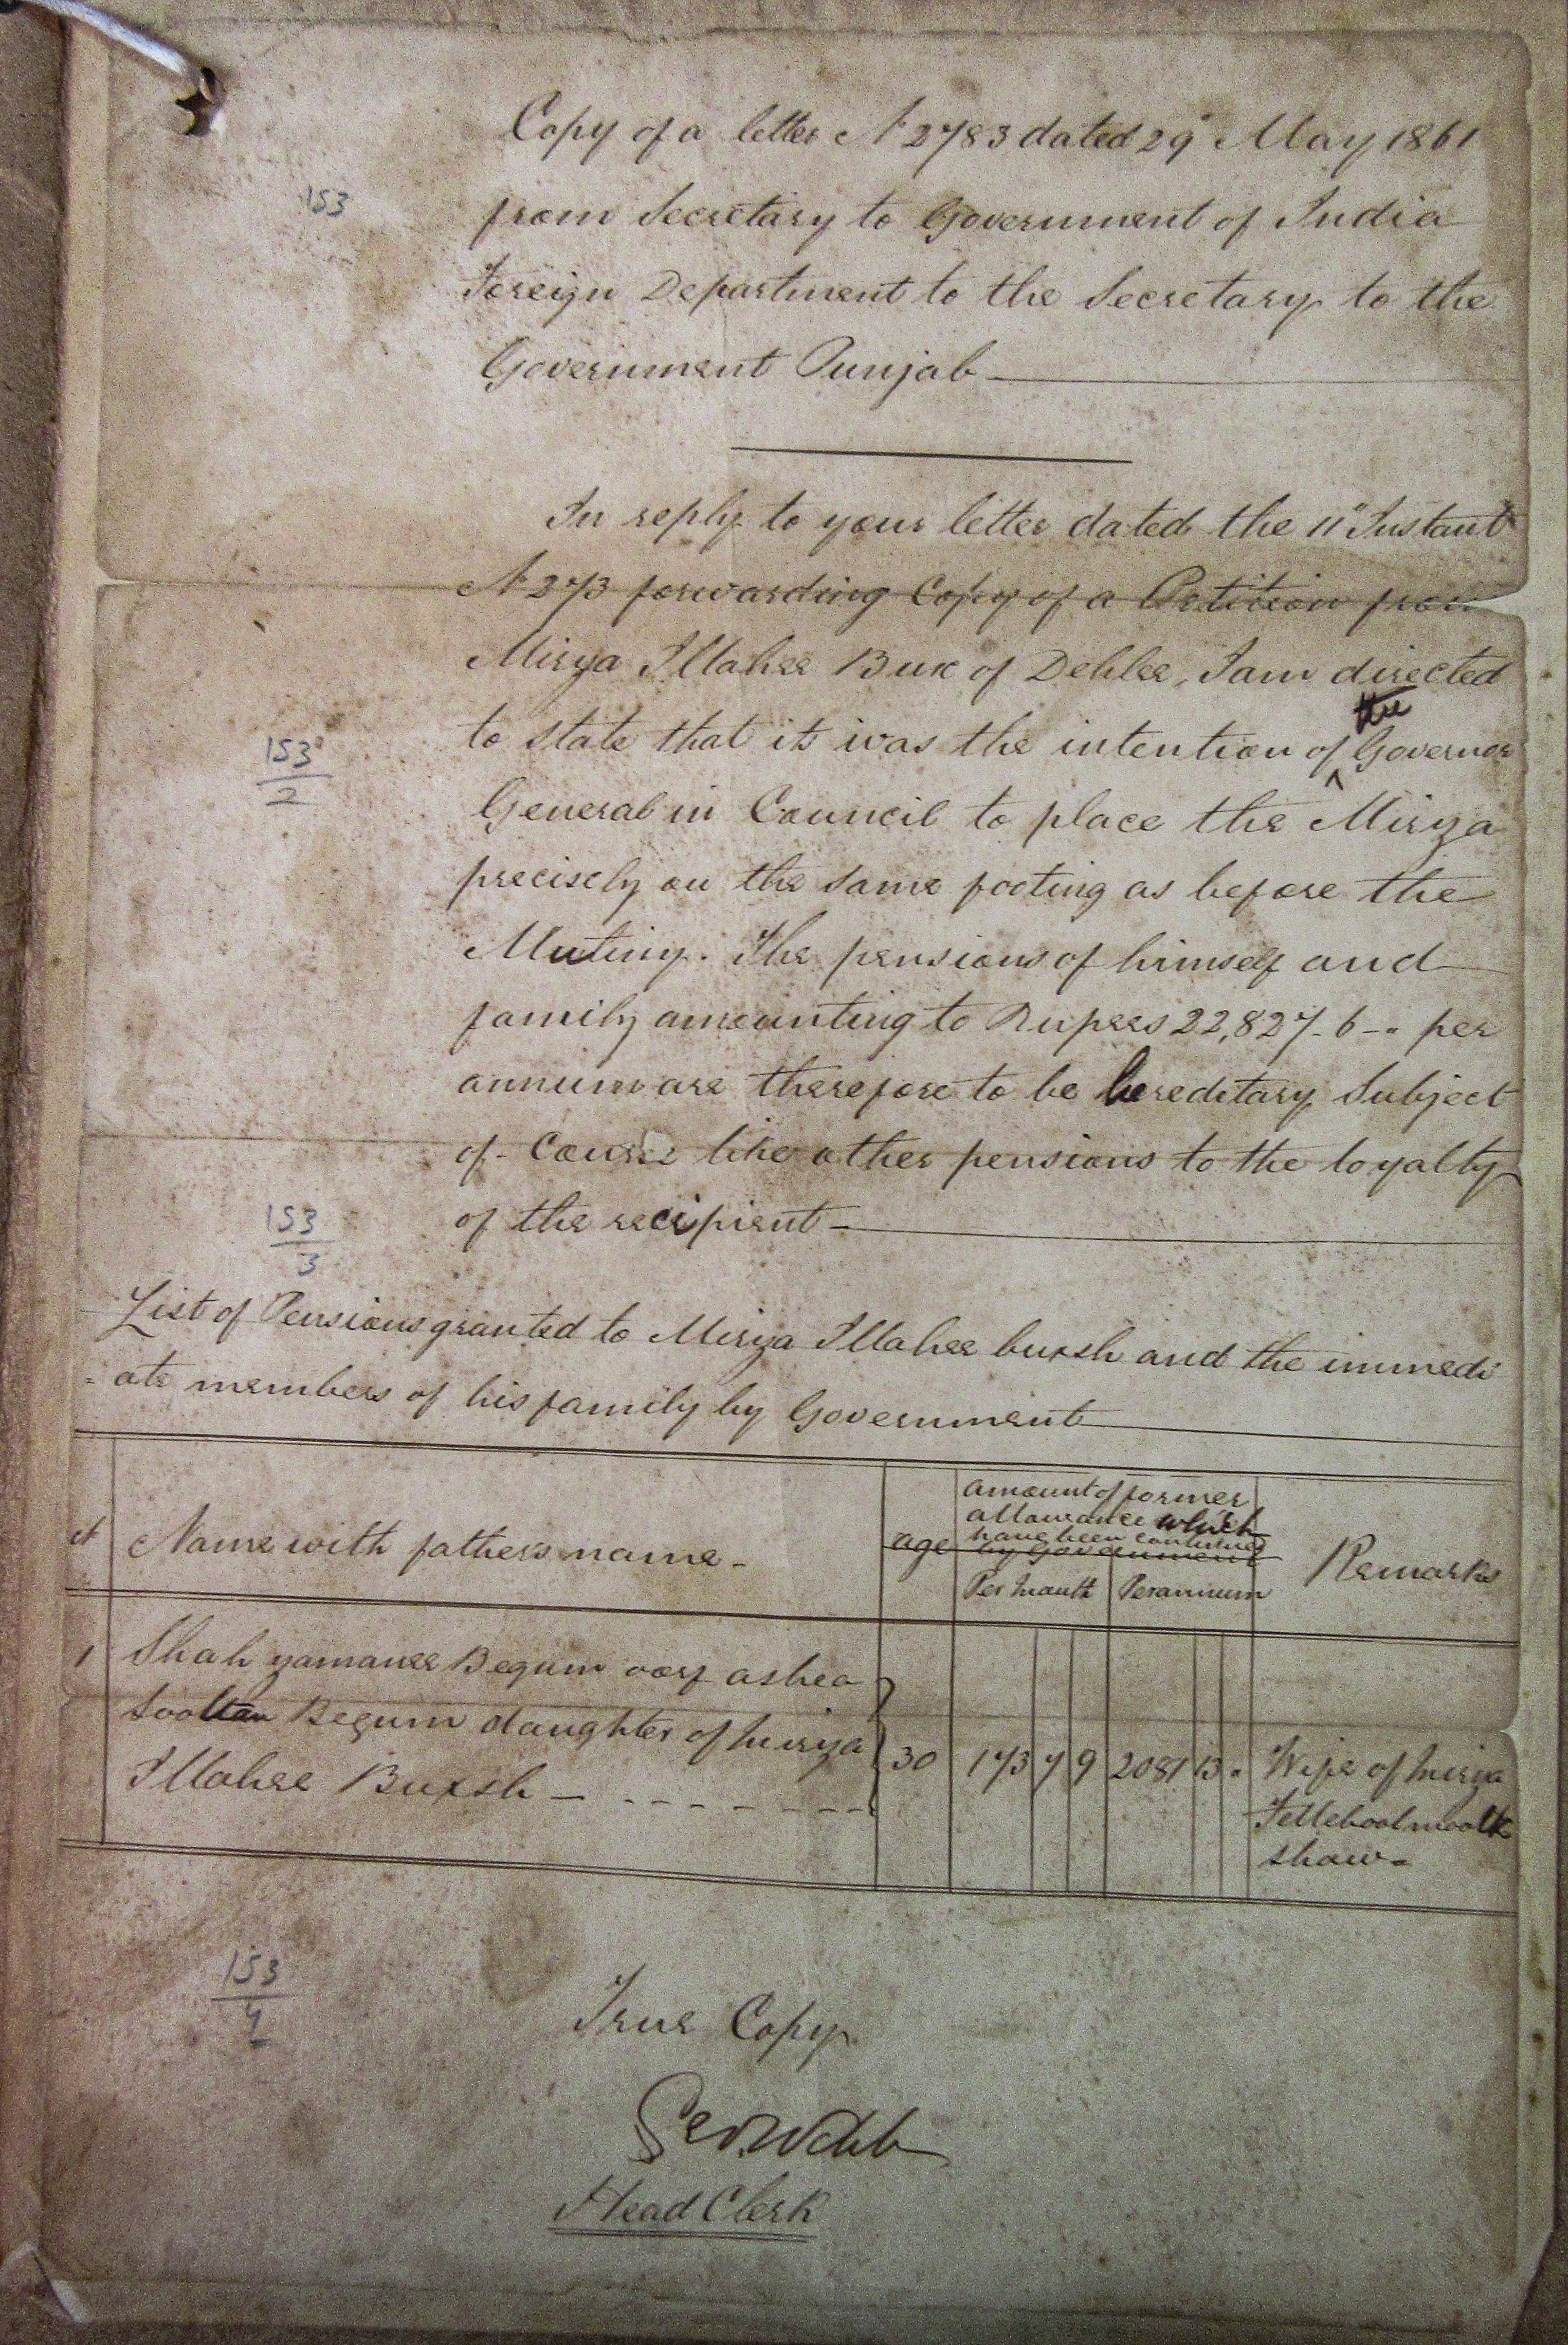 Copy of a letter No 2783 dated 29" May 1861
153
from Secretary to Government of India
Foreign Department to the Secretary to the
Government Punjab
In reply to your letter dated the 11" Instant
No 273 forwarding Copy of a Petition from
Mirza Illahee Bux of Dehlee, I am directed
to state that it was the intention of the Governor
153/2
General in Council to place the Mirza
precisely on the same footing as before the
Mutiny. The pensions of himself and
family amounting to Rupees 22,827-6-" per
annum are therefore to be hereditary Subject
of Course like other pensions to the loyalty
153/3
of the recipient
List of Pensions granted to Mirza Illahee buxsh and the immedi
-ate members of his family by Government
No Name with fathers name age amount of former
allowance which
have been continued
by Government
Per Month Per annum Remarks
1 Shah zamanee Begum oorf ashea
Sooltan Begum daughter of Mirza
Illahee Buxsh 30 173 7 9 2081 13 " Wife of Mirza
moolk
shaw
153/4
True Copy
Geo. Webb
Head Clerk